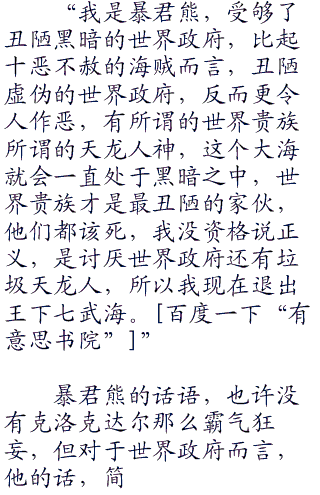 “我是暴君熊，受够了
丑陋黑暗的世界政府，比起
十恶不赦的海贼而言，丑陋
虚伪的世界政府，反而更令
人作恶，有所谓的世界贵族
所谓的天龙人神，这个大海
就会一直处于黑暗之中，世
界贵族才是最丑陋的家伙，
他们都该死，我没资格说正
义，是讨厌世界政府还有垃
圾天龙人，所以我现在退出
王下七武海。[百度一下“有
意思书院”]”
暴君熊的话语，也许没
有克洛克达尔那么霸气狂
妄，但对于世界政府而言，
他的话，简